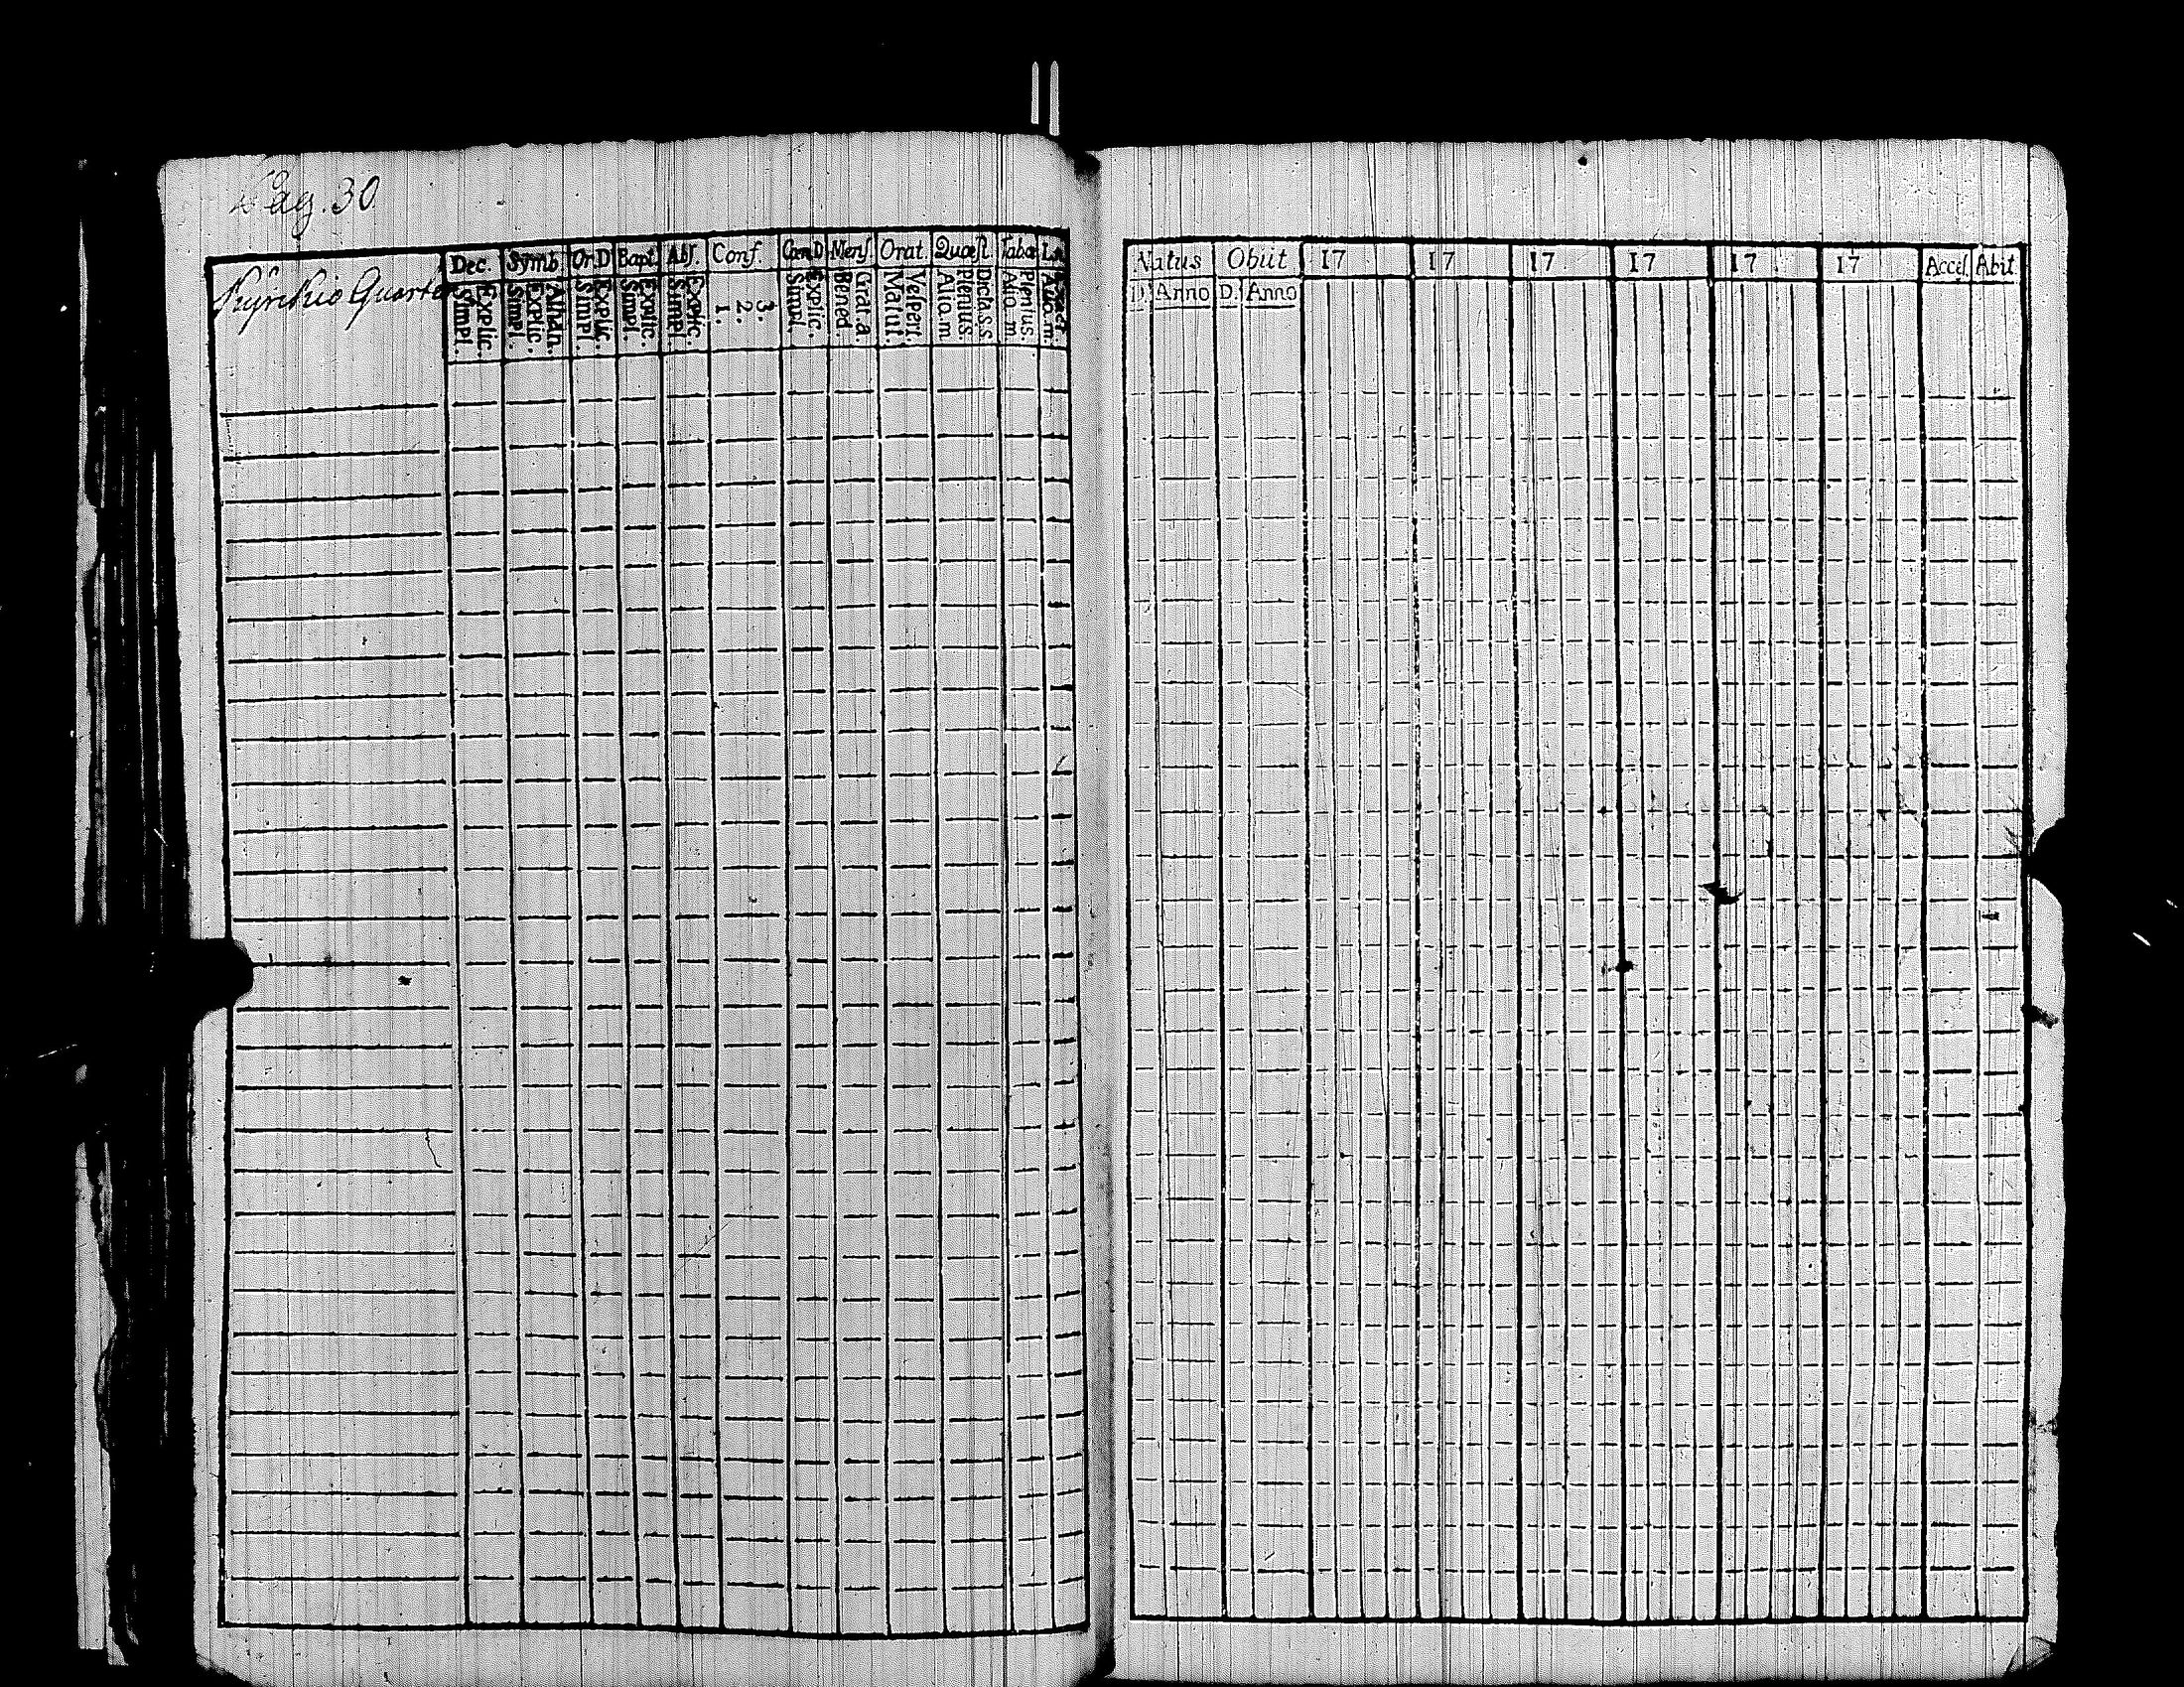 Pag. 30
Kyrckio Quarte
Dec. Symb Or D Bapt Abs. Conf. Cœn D Mens Orat. Quæst. Tabœ
Simpl. Explic. Simpl. Explic. Athan. Simpl. Explic. Simpl. Explic. Simpl. Explic. 1. 2. 3. Simpl. Explic. Bened Grat. a. Matut. Vespert. Alio. m Plenius. Dict. s.s. Alio. m Plenius. Alio. m.
Natus Obiit 17 17 17 17 17 17 Accēs. Abit
D. Anno D. Anno